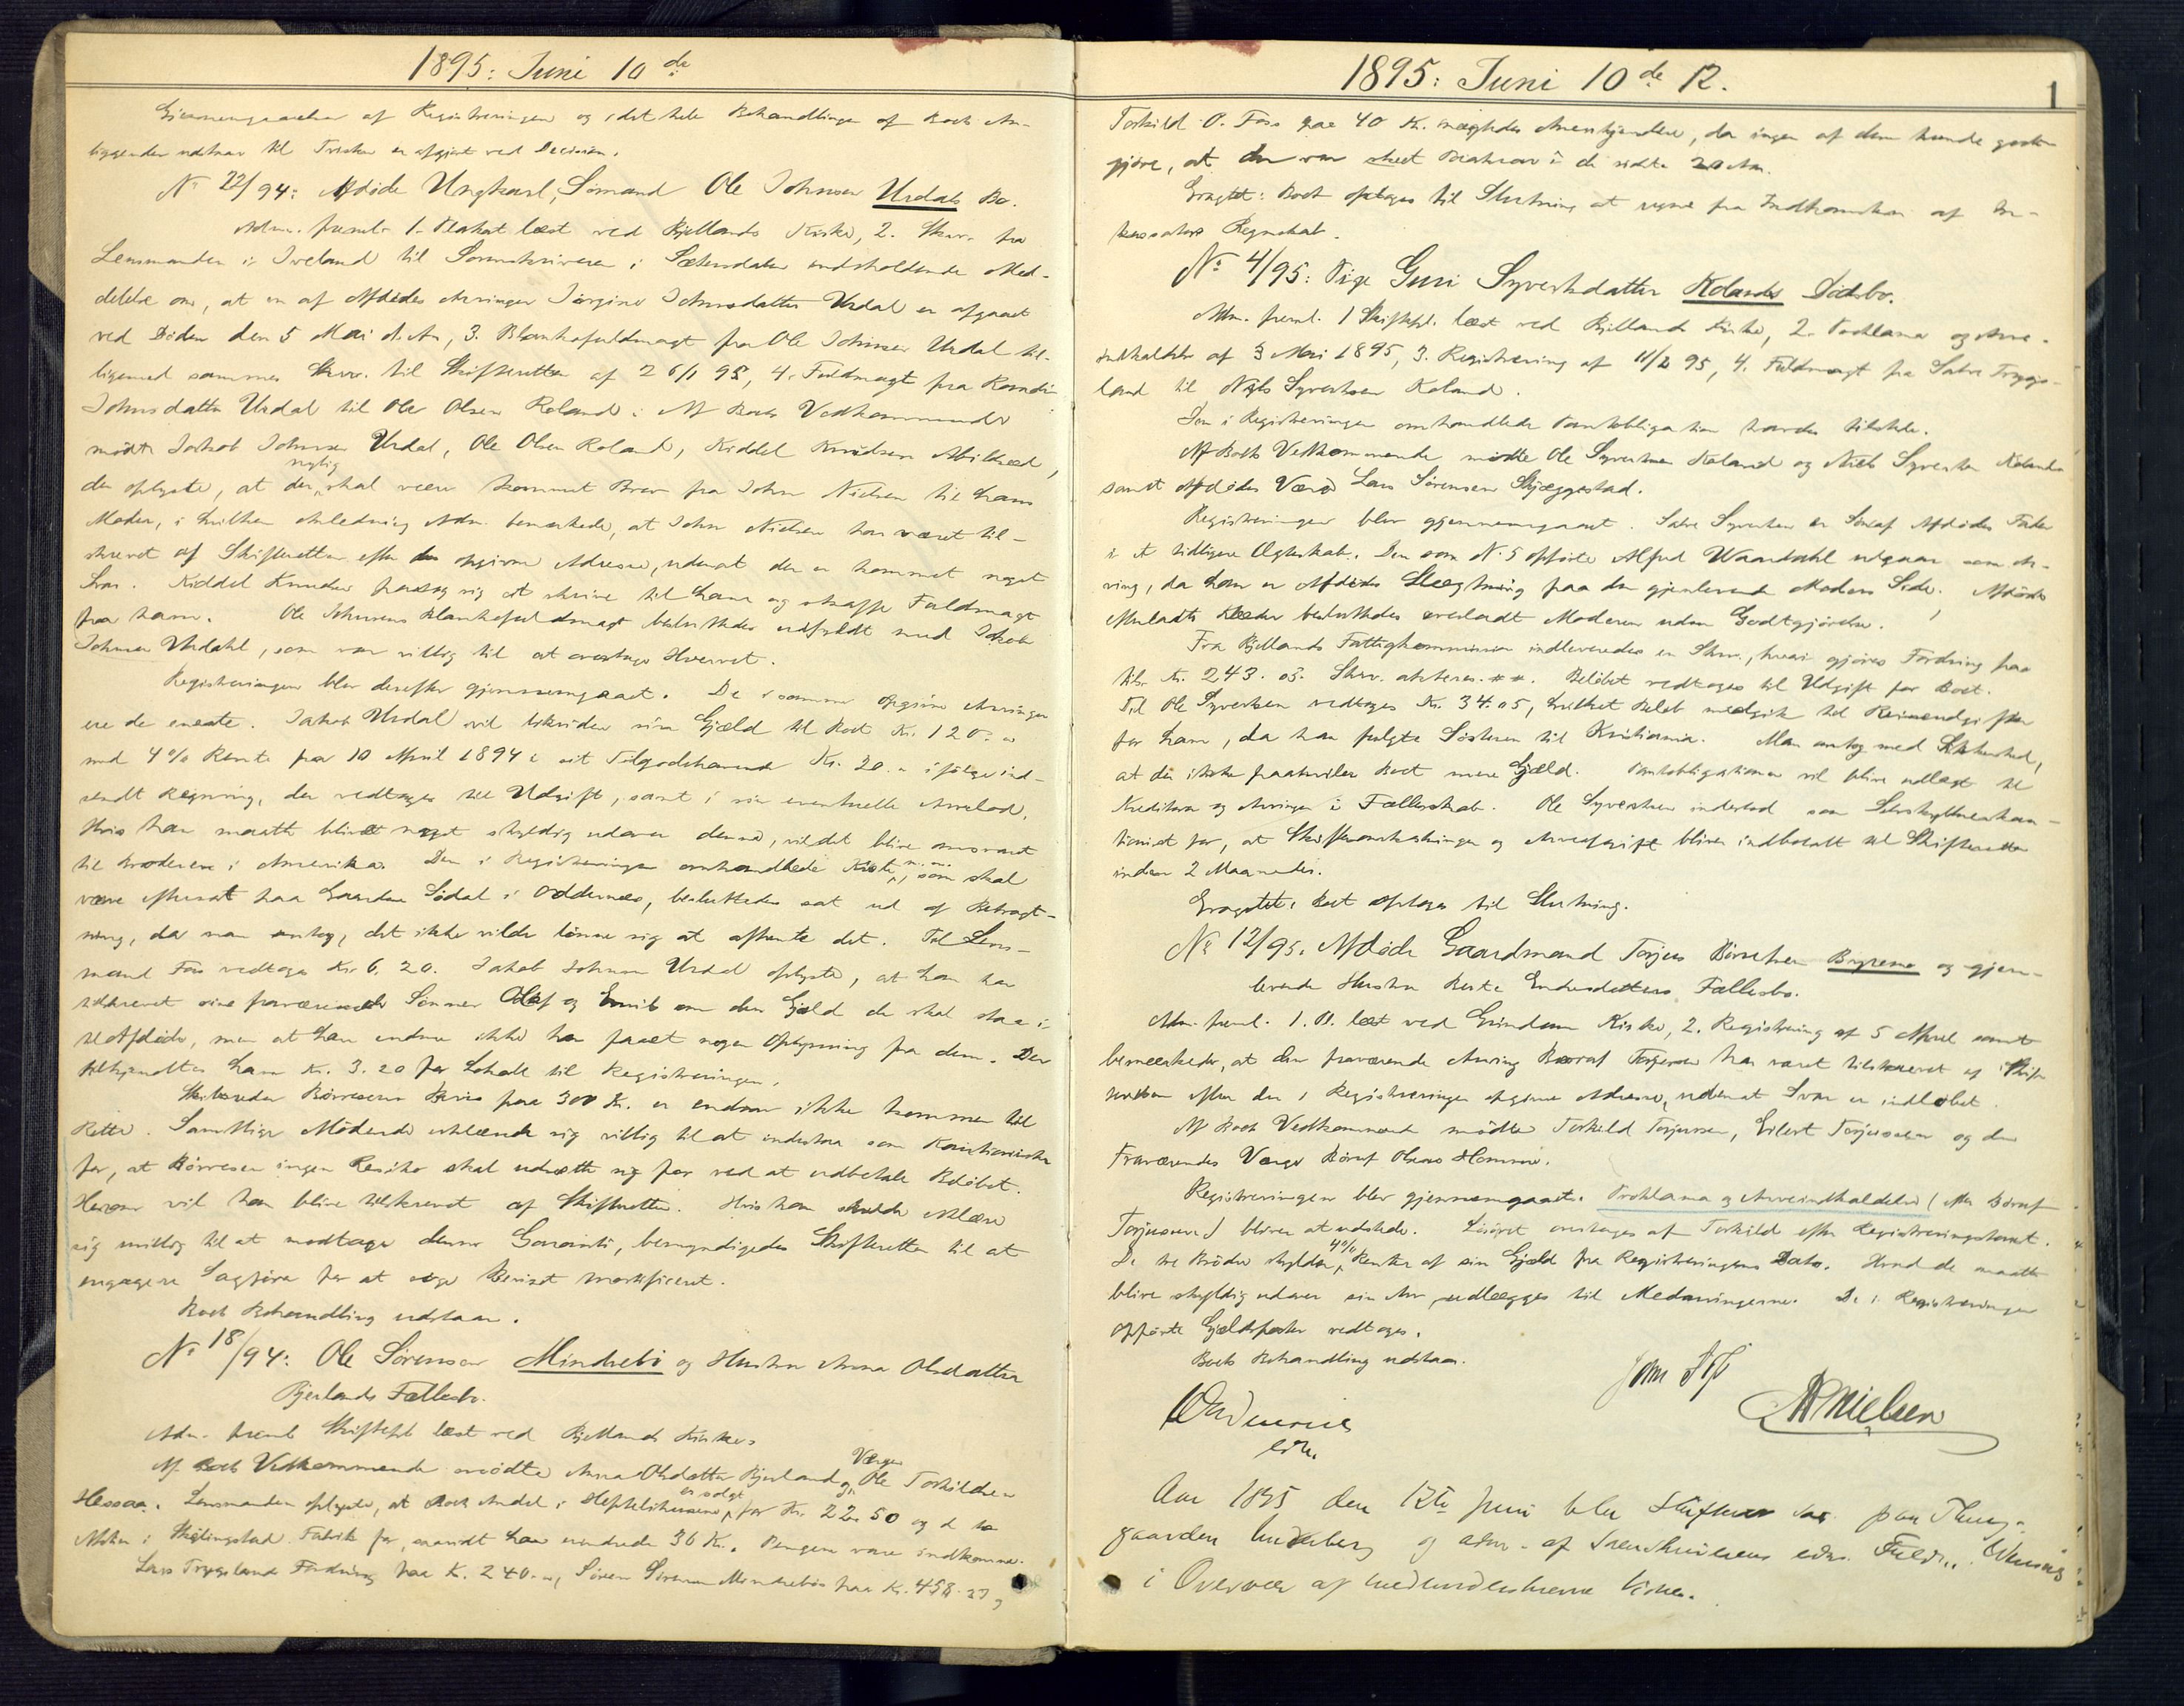 1895: Juni 10 de
Gjennemgaaelse af Registreringen og i det hele Behandlingen af Boets An-
liggender udstaar til Tvisten er afgjort ved Decision.
No 22/94: Afdöde Ungkarl, Sömand Ole Johnsen Urdals Bo.
Adm. freml. 1. Plakat læst ved Bjellands Kirke, 2. Skriv. fra
Lensmanden i Iveland til Sorenskriveren i Sætersdalen indeholdende Med-
delelse om, at en af Afdödes Arvinger Jörgine Johnsdatter Urdal er afgaaet
ved Döden den 5 Mai d. A., 3. Blankofuldmagt fra Ole Johnsen Urdal til-
ligemed sammes Skriv. til Skifteretten af 26/1 95, 4. Fuldmagt fra
Johnsdatter Urdal til Ole Olsen Roland. Af Boets Vedkommende
mödte Jakob Johnsen Urdal, Ole Olsen Roland, Kiddel Knudsen Abilsæd,
der oplyste, at der nylig skal være kommet Brev fra John Nielsen til hans
Moder, i hvilken Anledning Adm. bemærkede, at John Nielsen har været til-
skrevet af Skifteretten efter den opgivne Adresse, udenat der er kommet noget
Svar. Kiddel Knudsen paatog sig at skrive til ham og skaffe Fuldmagt
fra ham. Ole Johnsens Blankofuldmagt besluttedes udfyldt med Jakob
Johnsen Urdahl, som var villig til at overtage Hvervet.
Registreringen blev derefter gjennemgaaet. De i samme opgivne Arvinger
ere de eneste. Jakob Urdal vil likvidere sin Gjæld til Boet Kr. 120.
med 4% Rente fra 10 April 1894 i sit Tilgodehavende Kr. 20. ifölge ind-
sendt Regning, der vedtages til Udgift, samt i sin eventuelle Arvelod.
Hvis han maatte blive noget skyldig udover denne, vil det blive
til Bröderene i Amerika. Den i Registreringen omhandlede Kiste m. m. som skal
være efterladt paa Gaarden Södal i Oddernes, besluttedes sat ud af Betragt-
ning, da man antog, det ikke vilde lönne sig at afhente det. Til Lens-
mand Foss vedtages Kr. 6.20. Jakob Johnsen Urdal oplyste, at han har
tilskrevet sine fraværende Sönner Olaf og Emil om den Gjæld de skal staa i
til Afdöde, men at han endnu ikke har faaet nogen Oplysning fra dem. Der
tilkjendtes ham Kr. 3.20 for Lokale til Registreringen.
Skibsreder Börresens Bevis paa 300 Kr. er endnu ikke kommen til
Rette. Samtlige Mödende erklærede sig villig til at indestaa som Kautionister
for, at Börresen ingen Resiko skal udsætte sig for ved at udbetale Belöbet.
Herom vil han blive tilskrevet af Skifteretten. Hvis han skulde erklære
sig uvillig til at modtage denne Garanti, bemyndigedes Skifteretten til at
engagere Sagförer for at söge Beviset mortificeret.
Boets Behandling udstaar.
No 18/94: Ole Sörensen Mindrebö og Hustru Anna Olsdatter
Bjerlands Fællesbo.
Adm. freml. Skiftepl. læst ved Bjellands Kirke.
Af Boets Vedkommende mödte Anna Olsdatter Bjerland og Værgen Ole Torkildsen
Hessaa. Lensmanden oplyste, at Boets Andel i er solgt for Kr. 22.50 og
i Fabrik for, saavidt han erindrede 36 Kr. Pengene vare indkomne.
Lars Tryglands Fordring paa K. 240., Sören Sörensen Mindrebös paa Kr. 458.37,
1895: Juni 10 de 12.
1
Torkild O. Foss paa 40 Kr. nægtedes Anerkjendelse, da ingen af dem kunde godt-
gjöre, at der var skeet Paakrav i de sidste 20 Aar.
Eragtet: Boet optages til Slutning at regne fra Indkomsten af In-
kassators Regnskab.
No 4/95: Pige Guri Syvertsdatter Kolands Dödsbo.
Adm. freml. 1 Skiftepl. læst ved Bjellands Kirke, 2. Proklama og Arve-
indkaldelse af 3 Mai 1895, 3. Registrering af 11/2 95, 4. Fuldmagt fra Salve Trygs-
land til Niels Syvertsen Koland.
Den i Registreringen omhandlede Pantobligation havdes tilstede.
Af Boets Vedkommende mödte Ole Syvertsen Koland og Niels Syvertsen Koland
samt Afdödes Værge Lars Sörensen Skjæggestad.
Registreringen blev gjennemgaaet. Salve Syvertsen er Sön af Afdödes Fader
i et tidligere Ægteskab. Den som No. 5 opförte Alfred Waardahl udgaar som Ar-
ving, da han er Afdödes Slægtning paa den gjenlevende Moders Side. Afdödes
efterladte Klæder besluttedes overladt Moderen uden Godtgjörelse.
Fra Bjellands Fattigkommission indleveredes en Skriv., hvori gjöres Fordring paa
tils. Kr. 243.03. Skriv. akteres. **. Belöbet vedtages til Udgift for Boet.
Til Ole Syvertsen vedtages Kr. 34.05, hvilket Belöb medgik til Reiseudgifter
for ham, da han fulgte Sösteren til Kristiania. Man antog med Sikkerhed,
at der ikke paahviler Boet mere Gjæld. Pantobligationen vil blive udlagt til
Kreditorer og Arvinger i Fællesskab. Ole Syvertsen indestod som Selvskyldnerkau-
tionist for, at Skifteomkostninger og Arveafgift bliver indbetalt til Skifteretten
inden 2 Maaneder.
Eragtet: Boet optages til Slutning.
No 12/95. Afdöde Gaardmand Torjus Börufsen Bryrene og gjen-
levende Hustru Berte Endresdatters Fællesbo.
Adm. freml. 1. Pl. læst ved Grindum Kirke, 2. Registrering af 5 April samt
bemærkede, at den fraværende Arving Böruf Torjusen har været tilskrevet af Skifte-
retten efter den i Registreringen opgivne Adresse, udenat Svar er indlöbet.
Af Boets Vedkommende mödte Torkild Torjussen, Eilert Torjussen og den
Fraværendes Værge Böruf Olsen Homme.
Registreringen blev gjennemgaaet. Proklama og Arveindkaldelse (Böruf
Torjussen) bliver at udstede. Lösöret overtages af Torkild efter Registreringstaxt.
De tre Brödre skylder 4% Rente af sin Gjæld fra Registreringens Dato. Hvad de maatte
blive skyldig udover sin Arv, udlægges til Medarvingerne. De i Registreringen
opförte Gjældsposter vedtages.
Boets Behandling udstaar.
AR Nielsen
Aar 1895 den 12te Juni blev Skifteret sat paa Thing-
gaarden og adm. af Sorenskriverens edsv. Fuldm.
i Overvær af